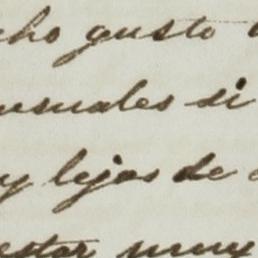 cho gusto
usuales si
y lejos de
estar muy